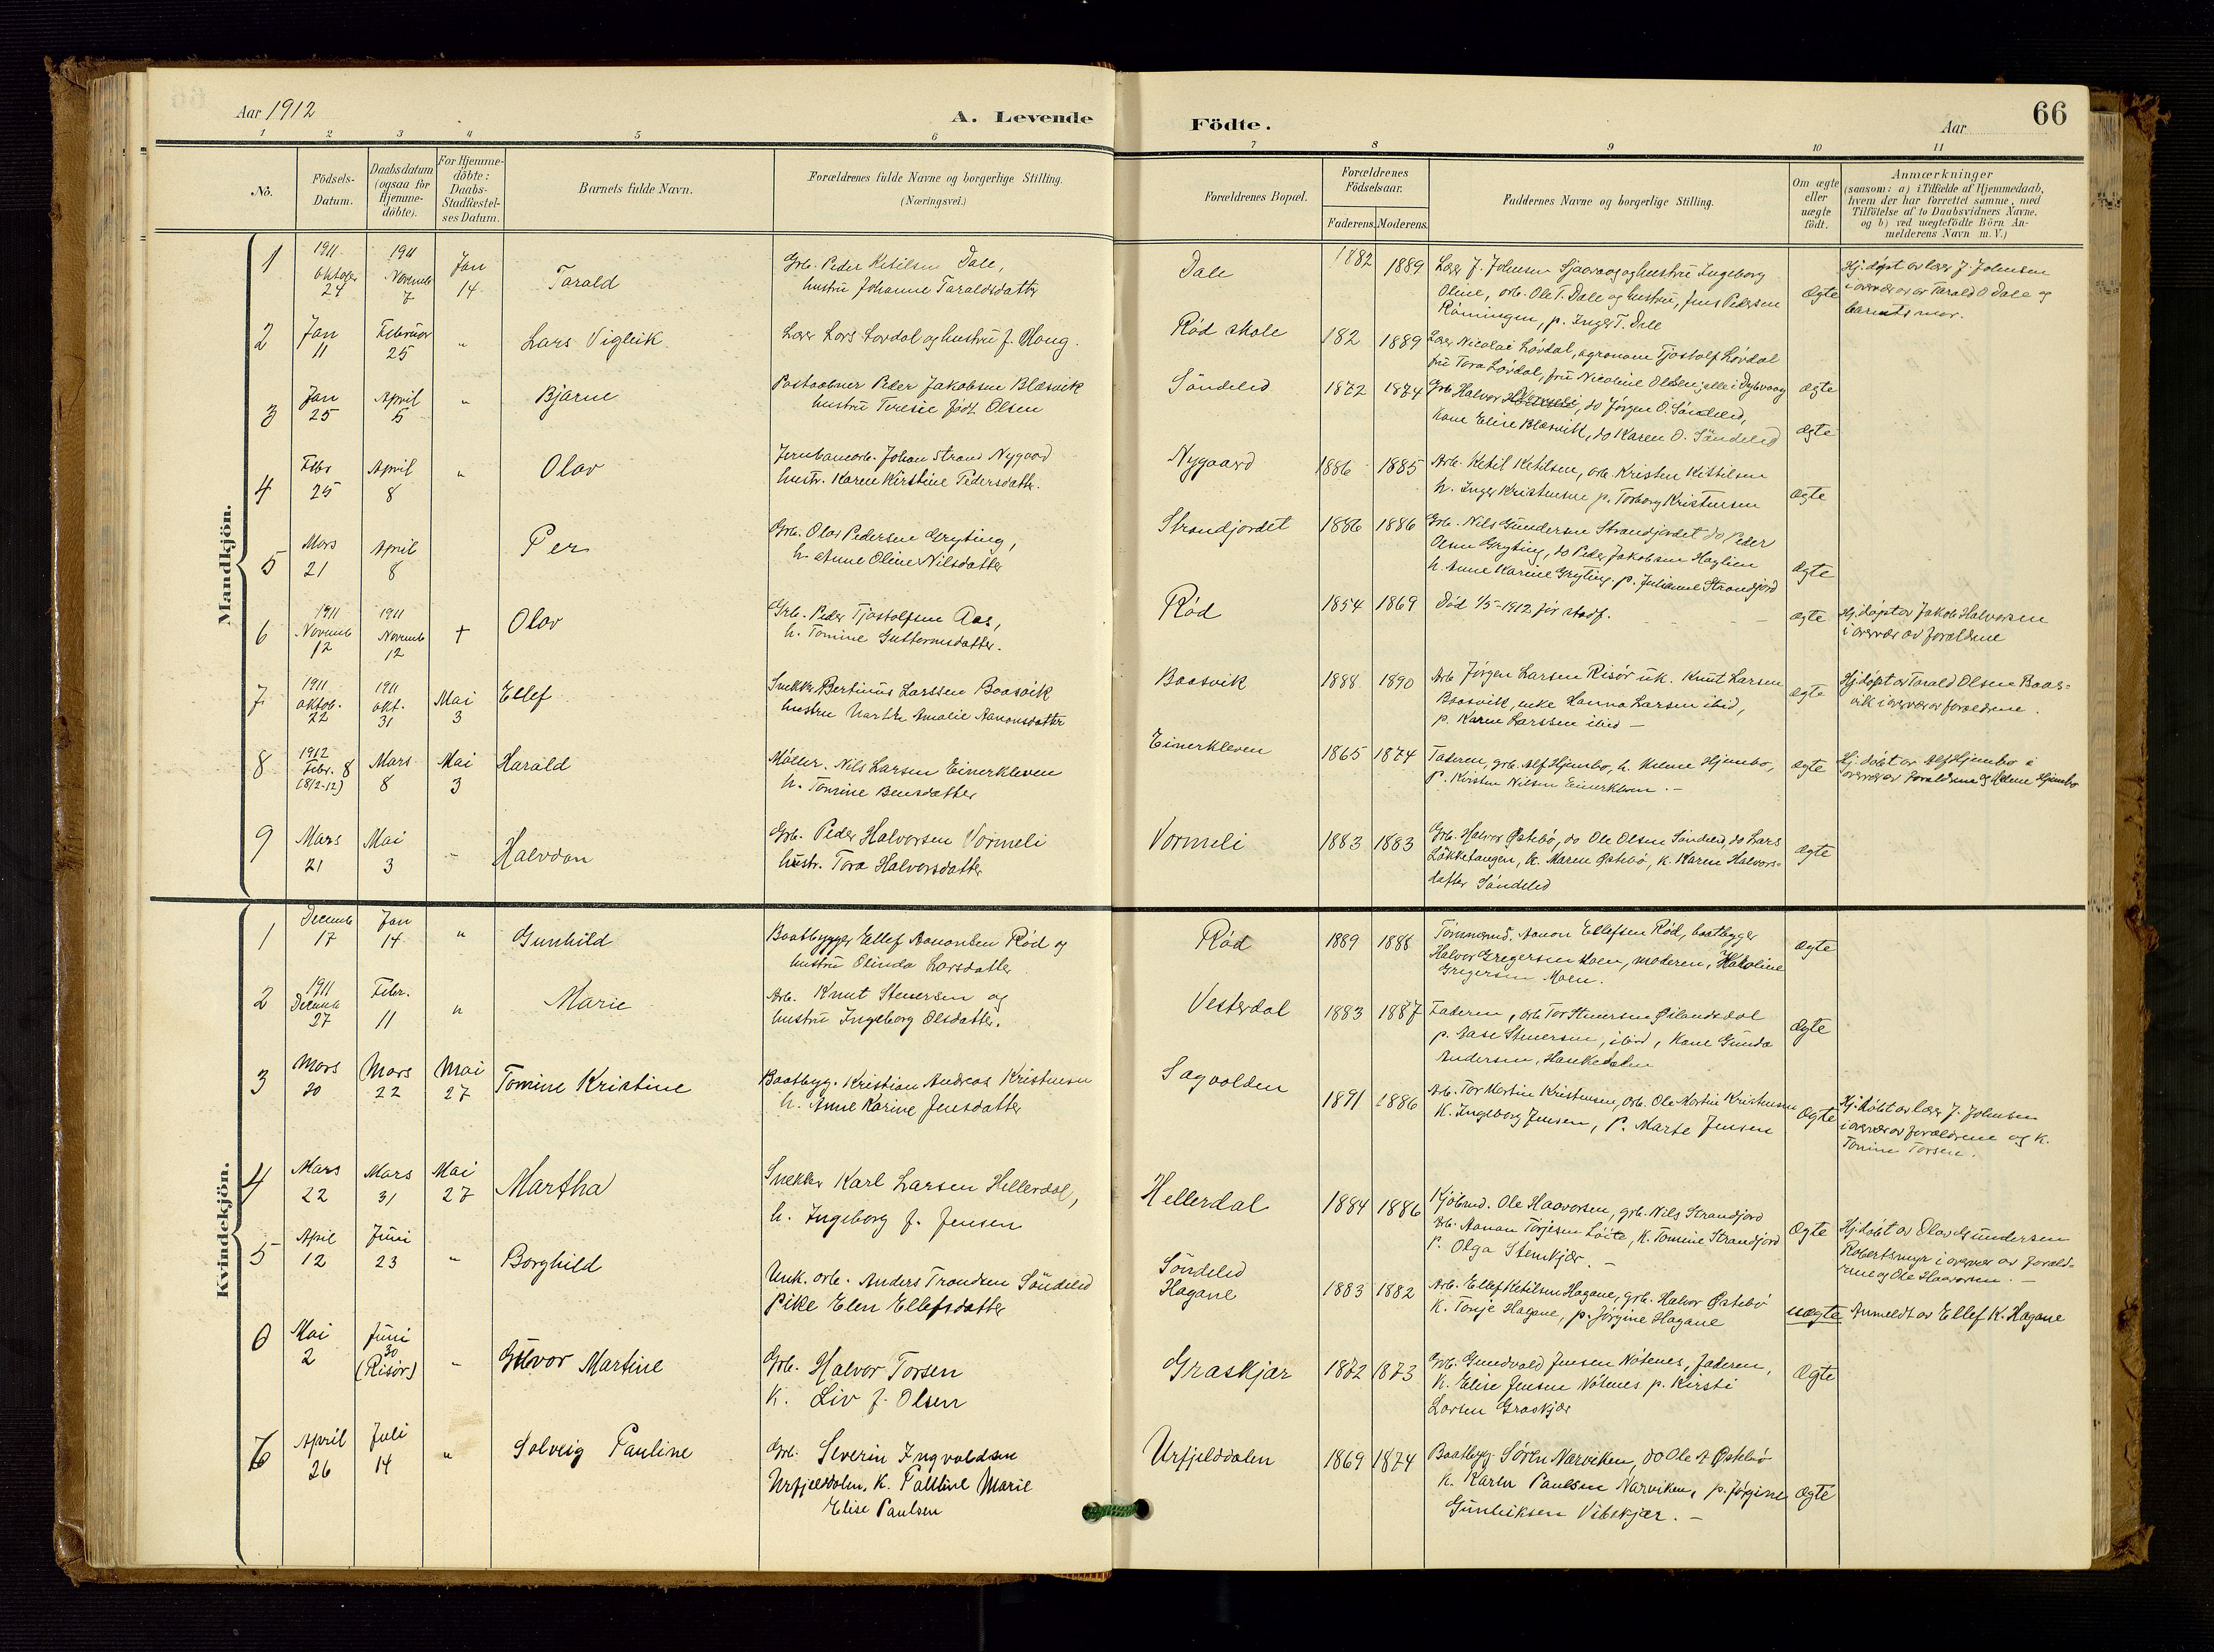 Aar 1912
A. Levende
Födte.
Aar
66
1 2 3 4 5 6 7 8 9 10 11
No.
Födsels-
Datum.
Daabsdatum
(ogsaa for
Hjemme-
döbte).
For Hjemme-
döbte:
Daabs-
Stadfæstel-
ses Datum.
Barnets fulde Navn.
Forældrenes fulde Navne og borgerlige Stilling.
(Næringsvei.)
Forældrenes Bopæl.
Forældrenes
Födselsaar.
Faderens. Moderens.
Faddernes Navne og borgerlige Stilling.
Om ægte
eller
uægte
födt.
Anmærkninger
(saasom: a) i Tilfælde af Hjemmedaab,
hvem der har forrettet samme, med
Tilföielse af to Daabsvidners Navne.
og b) ved uægtefödte Börn An-
melderens Navn m. V.)
Mandkjön.
1
1911
Oktober
24
1911
Novemb
7
Jan
14
Tarald
Grb. Peder Ketilsen Dale,
hustru Johanne Taraldsdatter
Dale
1882 1889
Lærer J. Johnsen og hustru Ingeborg
Oline, arb. Ole T. Dale og hustru, Jens Pedersen
Röiningen, p. Inger T. Dale
Ægte
Hj. döpt av lærer J. Johnsen
i overvær av Tarald O. Dale og
barnets mor.
2
Jan
11
Februar
25
"
Lars Vigleik
Lærer Lars Lövdal og hustru f. Haug.
Röd skole
182 1889
Lærer Nicolai Lövdal, agronom Tjostolf Lövdal
fru Tora Lövdal, fru Nicoline Olsen, alle i Dybvaag
Ægte
3
Jan
25
April
5
"
Bjarne
Postaabner Peder Jakobsen Blæsvik
hustru Teresie født Olsen
Söndeled
1872 1874
Grb. Halvor, do Jörgen O. Söndeled,
Kone Elise Blæsvik, do Karen O. Söndeled
Ægte
4
Febr
25
April
8
"
Olav
Jernbanearb. Johan Strand Nygaard
hustr. Karen Kirstine Pedersdatter.
Nygaard
1886 1885
Arb. Ketil Ketilsen, arb. Kristen Kittilsen
h. Inger Kristensen p. Torborg Kristensen
Ægte
5
Mars
21
April
8
Per
Grb. Olav Pedersen Gryting,
h. Anne Oline Nilsdatter
Strandjordet
1886 1886
Grb. Nils Gundersen Strandjordet do Peder
Olsen Gryting, do Peder Jakobsen Haglien
h. Anne Karine Gryting. p. Julianne Strandjord
Ægte
6
1911
Novemb
12
1911
Novemb
12
+
Olav
Grb. Peder Tjostolfsen Aas,
h. Tomine Guttormsdatter.
Röd
1854 1869
Död 1/5-1912 för stadf.
Ægte
Hj. döpt av Jakob Halvorsen
i overvær av forældrene
7
1911
Oktob.
22
1911
Okt.
31
Mai
3
Ellef
Snekker Bertinus Larssen Baasvik
hustru Marthe Amalie Aanonsdatter
Baasvik
1888 1890
Arb. Jörgen Larsen Risör uk. Knut Larsen
Baasvik, enke Hanna Larsen ibid,
p. Karen Larssen ibid —
Ægte
Hj. döpt av Tarald Olsen Baas-
vik i overvær av forældrene.
8
1912
Febr. 8
(8/2-12)
Mars
8
Mai
3
Harald
Möller. Nils Larsen Einerkleven
h. Tomine Bensdatter
Einerkleven
1865 1874
Faderen, grb. Alf Hjembo, h. Helene Hjembo,
P. Kirsten Nilsen Einerkleven. —
Ægte
Hj. döbt av Alf Hjembo i
overvær av forældrene og Helene Hjembo
9
Mars
21
Mai
3
-
Halvdan
Grb. Peder Halvorsen Vormeli
hustr. Tora Halvorsdatter
Vormeli
1883 1883
Grb. Halvor Østebö, do Ole Olsen Söndeled, do Lars
Lökketangen, k. Maren Østebö, k. Karen Halvors-
datter Söndeled
Ægte
Kvindekjön.
1
Decemb
17
Jan
14
"
Gunhild
Baatbygger Ellef Aanonsen Röd og
hustru Olinda Larsdatter
Röd
1889 1888
Tömmermd. Aanon Ellefsen Röd, baatbygger
Halvor Gregersen Moen, moderen, Haroline
Gregersen Moen.
Ægte
2
1911
Decemb
27
Febr.
11
"
Marie
Arb. Knut Stenersen og
hustru Ingeborg Olsdatter.
Vesterdal
1883 1887
Faderen, arb. Tor Stenersen Øilandsdal
p. Aase Stenersen, ibid, Kone Gunda
Andersen, Haukedalen
Ægte
3
Mars
20
Mars
22
Mai
27
Tomine Kristine
Baatbyg. Kristian Andreas Kristensen
h. Anne Karine Jensdatter
Sagvolden
1891 1886
Arb. Tor Martin Kristensen, arb. Ole Martin Kristensen
K. Ingeborg Jensen, P. Marte Jensen
Ægte
Hj. döbt av lærer J. Johnsen
i overvær av forældrene og K.
Tomine Torsen.
4
Mars
22
Mars
31
Mai
27
Martha
Snekker Karl Larsen Hellerdal,
h. Ingeborg f. Jensen
Hellerdal
1884 1886
Kjöbmd. Ole Haavorsen, grb. Nils Strandjord
Arb. Aanon Törjesen Löite, K. Tomine Strandjord
P. Olga Stenkjær. —
Ægte
Hj. döbt av Olav Gundersen
Robertsmyr i overvær av foræld-
rene og Ole Haavorsen. —
5
April
12
Juni
23
"
Borghild
Unk. arb. Anders Trondsen Söndeled
Pike Elen Ellefsdatter
Söndeled
Hagane
1883 1882
Arb. Ellef Ketilsen Hagane, grb. Halvor Østebö
K. Tonje Hagane, p. Jörgine Hagane
uægte
Anmeldt av Ellef K. Hagane
6
Mai
2
Juni
30
(Risör)
"
Gunvor Martine
Grb. Halvor Torsen
K. Liv f. Olsen
Graskjær
1872 1873
Grb. Gundvald Jensen Nötenes, faderen,
K. Elise Jensen Nötenes p. Kirsti
Larsen Graskjær
Ægte
7
April
26
Juli
14
"
Solveig Pauline
Grb. Severin Ingvaldsen
Urfjelddalen, K. Pauline Marie
Elise Paulsen
Urfjelddalen
1869 1874
Baatbyg. Sören Narviken, do Ole A Østebö
K. Karen Paulsen Narviken, p. Jörgine
Gunleiksen Vibskjær. —
Ægte